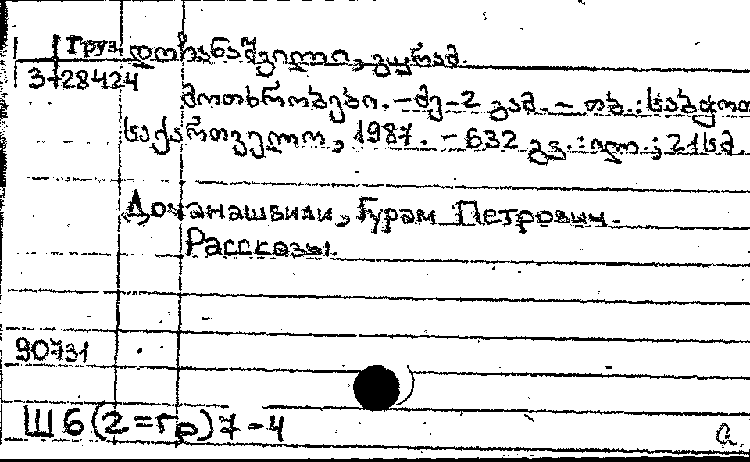 Груз. დოჩანაშვილი, გურამ.
3-28424
მოთხრობები. - მე-2 გამ. - თბ.: საბჭოთა
საქართველო, 1987. - 632 გვ.: ილ.; 21 სმ.
Дочанашвили, Гурам Петрович.
Рассказы.
90731
Ш6(2=Гр)7-4
а.